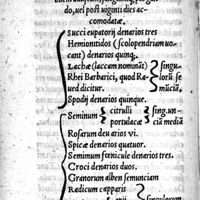 do, uel post uiginti dies ac=
comodatæ.
Succi eupatorij denarios tres
Hemionitidos (scolopendriam uo=
cant) denarios quinq;
Lacbæ (laccam nominãt)
Rhei Barbarici, quod Ra=
ued dicitur.
singu=
lorũ se
mũciã,
Spodij denarios quinque.
Seminum
citrulli
portulacæ
sing.un=
ciã mediã
Rosarum denarios vi.
Spicæ denarios quatuor.
Seminum fœniculæ denarios tres.
Croci denarios duos.
Granorum alben semunciam
Radicum capparis